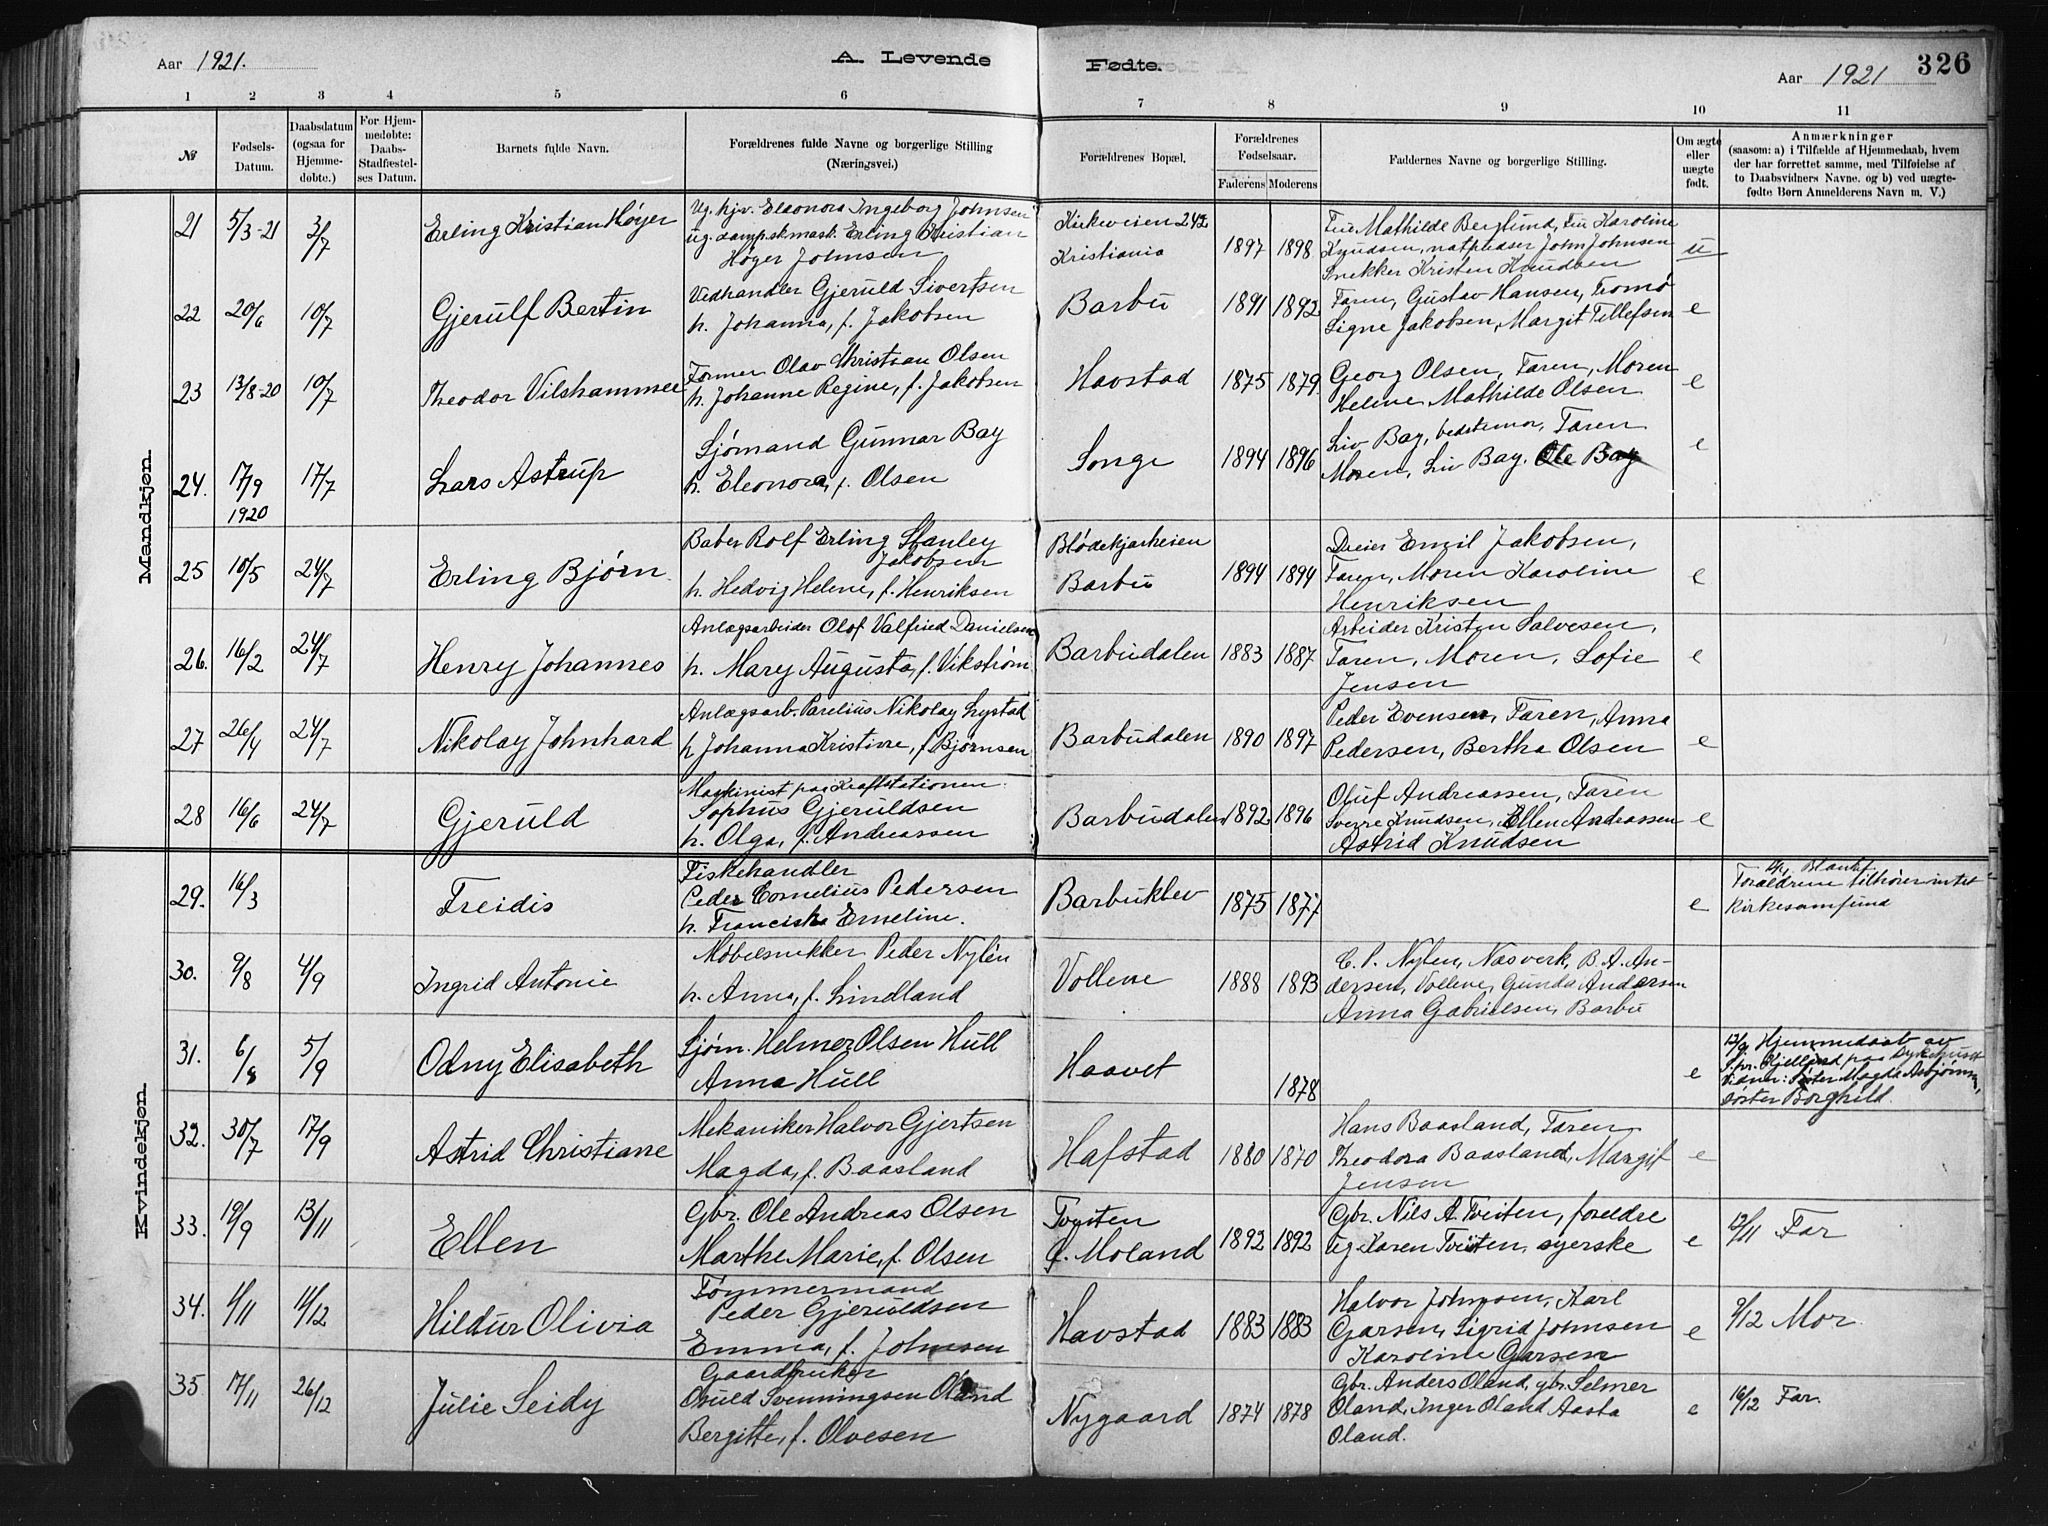 Aar 1921.
A. Levende
Fødte.
Aar 1921
326
1 2 3 4 5 6 7 8 9 10 11
№
Fødsels-Datum.
Daabsdatum (ogsaa for Hjemmedøbte.)
For Hjemmedøbte: Daabs-Stadfæstelses Datum.
Barnets fulde Navn.
Forældrenes fulde Navne og borgerlige Stilling
(Næringsvei.)
Forældrenes Bopæl.
Forældrenes Fødselsaar.
Faderens Moderens
Faddernes Navne og borgerlige Stilling.
Om ægte eller uægte født.
Anmærkninger
(saasom: a) i Tilfælde af Hjemmedaab, hvem
der har forrettet samme, med Tilføielse af
to Daabsvidners Navne. og b) ved uægte-
fødte Børn Anmelderens Navn m. V.)
Mandkjøn.
21 5/3-21 3/7 Erling Kristian Høyer
Ug. hjv. Eleonora Ingeborg Johnsen
ug. dampsk.mask. Erling Kristian
Høyer Johnsen
Kirkeveien 242
Kristiania
1897 1898
Fru Mathilde Berglund, Fru Karoline
Knudsen, John Johnsen
Snekker Kristen Knudsen
u
22 20/6 10/7 Gjerulf Bertin
Vedhandler Gjeruld Sivertsen
h. Johanna, f. Jakobsen
Barbu 1891 1892
Faren, Gustav Hansen, Tromø
Signe Jakobsen, Margit Tellefsen
e
23 13/8-20 10/7 Theodor Vilshammer
Former Olav Christian Olsen
h. Johanne Regine, f. Jakobsen
Havstad 1875 1879.
Georg Olsen, Faren, Moren
Helene Mathilde Olsen
e
24. 17/9 1920 17/7 Lars Astrup
Sjømand Gunnar Bay
h. Eleonora, f. Olsen
Songe 1894 1896
Liv Bay, bedstemor, Faren
Moren, Liv Bay. Ole Bay
e
25 10/5 24/7 Erling Bjørn
Rolf Erling Stanley
Jakobsen
h. Hedvig Helene, f. Henriksen
Blødekjærheien
Barbu
1894 1894
Dreier Emil Jakobsen,
Faren, Moren Karoline
Henriksen
e
26. 16/2 24/7 Henry Johannes
Anlægsarbeider Olof Valfried Danielsen
h. Mary Augusta, f. Vikstrøm
Barbudalen 1883 1887
Arbeider Kristen Salvesen,
Faren, Moren, Sofie
Jensen
e
27 26/4 24/7 Nikolay Johnhard
Anlægsarb. Parelius Nikolay Lystad
h Johanna Kristine, f. Bjørnsen
Barbudalen 1890 1897
Peder Evensen, Faren, Anna
Pedersen, Bertha Olsen
e
28 16/6 24/7 Gjeruld
Maskinist paa Kraftstationen
Sophus Gjeruldsen
h. Olga, f. Andreassen
Barbudalen 1892 1896
Oluf Andreassen, Faren
Sverre Knudsen, Ellen Andreassen
Astrid Knudsen
e
Kvindekjøn.
29. 16/3 Freidis
Fiskehandler
Peder Cornelius Pedersen
h. Franciska Emeline.
Barbuklev 1875 1877
e
Forældrene tilhører intet
Kirkesamfund
30. 9/8 4/9 Ingrid Antonie
Møbelsnekker Peder Nylén
h. Anna, f. Lindland
Vollene 1888 1893
C. P. Nylen, Næsverk, B. A. An-
dersen, Vollene, Gunda Andersen
Anna Gabrielsen, Barbu
31. 6/8 5/9 Odny Elisabeth
Sjøm. Helmer Olsen Hull
Anna Hull
Haavet 1878
e
12/9 Hjemmedaab av
S.pr. Kjelland paa Sykehuset
Vidner: Søster Magda Asbjørnsen,
søster Borghild.
32. 30/7 17/9 Astrid Christiane
Mekaniker Halvor Gjertsen
Magda, f. Baasland
Hafstad 1880 1870
Hans Baasland, Faren
Theodora Baasland, Margit
Jensen
e
33. 19/9 13/11 Ellen
Gbr. Ole Andreas Olsen
Marthe Marie, f. Olsen
Tveiten
Ø. Moland
1892 1892
Gbr. Nils A. Tveiten, foreldre
ug. Karen Tveiten, syerske
e
12/11 Far
34. 1/11 11/12 Hildur Olivia
Tømmermand
Peder Gjeruldsen
Emma, f. Johnsen
Havstad 1883 1883
Halvor Johnsen, Karl
Garsen, Sigrid Johnsen
Karoline Garsen
e
9/12 Mor
35 17/11 26/12 Julie Seidy
Gaardbruker
Osuld Svenningsen Øland
Bergitte, f. Olvesen
Nygaard 1874 1878
Gbr. Anders Øland, gbr. Selmer
Øland, Inger Øland Aasta
Øland.
e
16/12 Far.